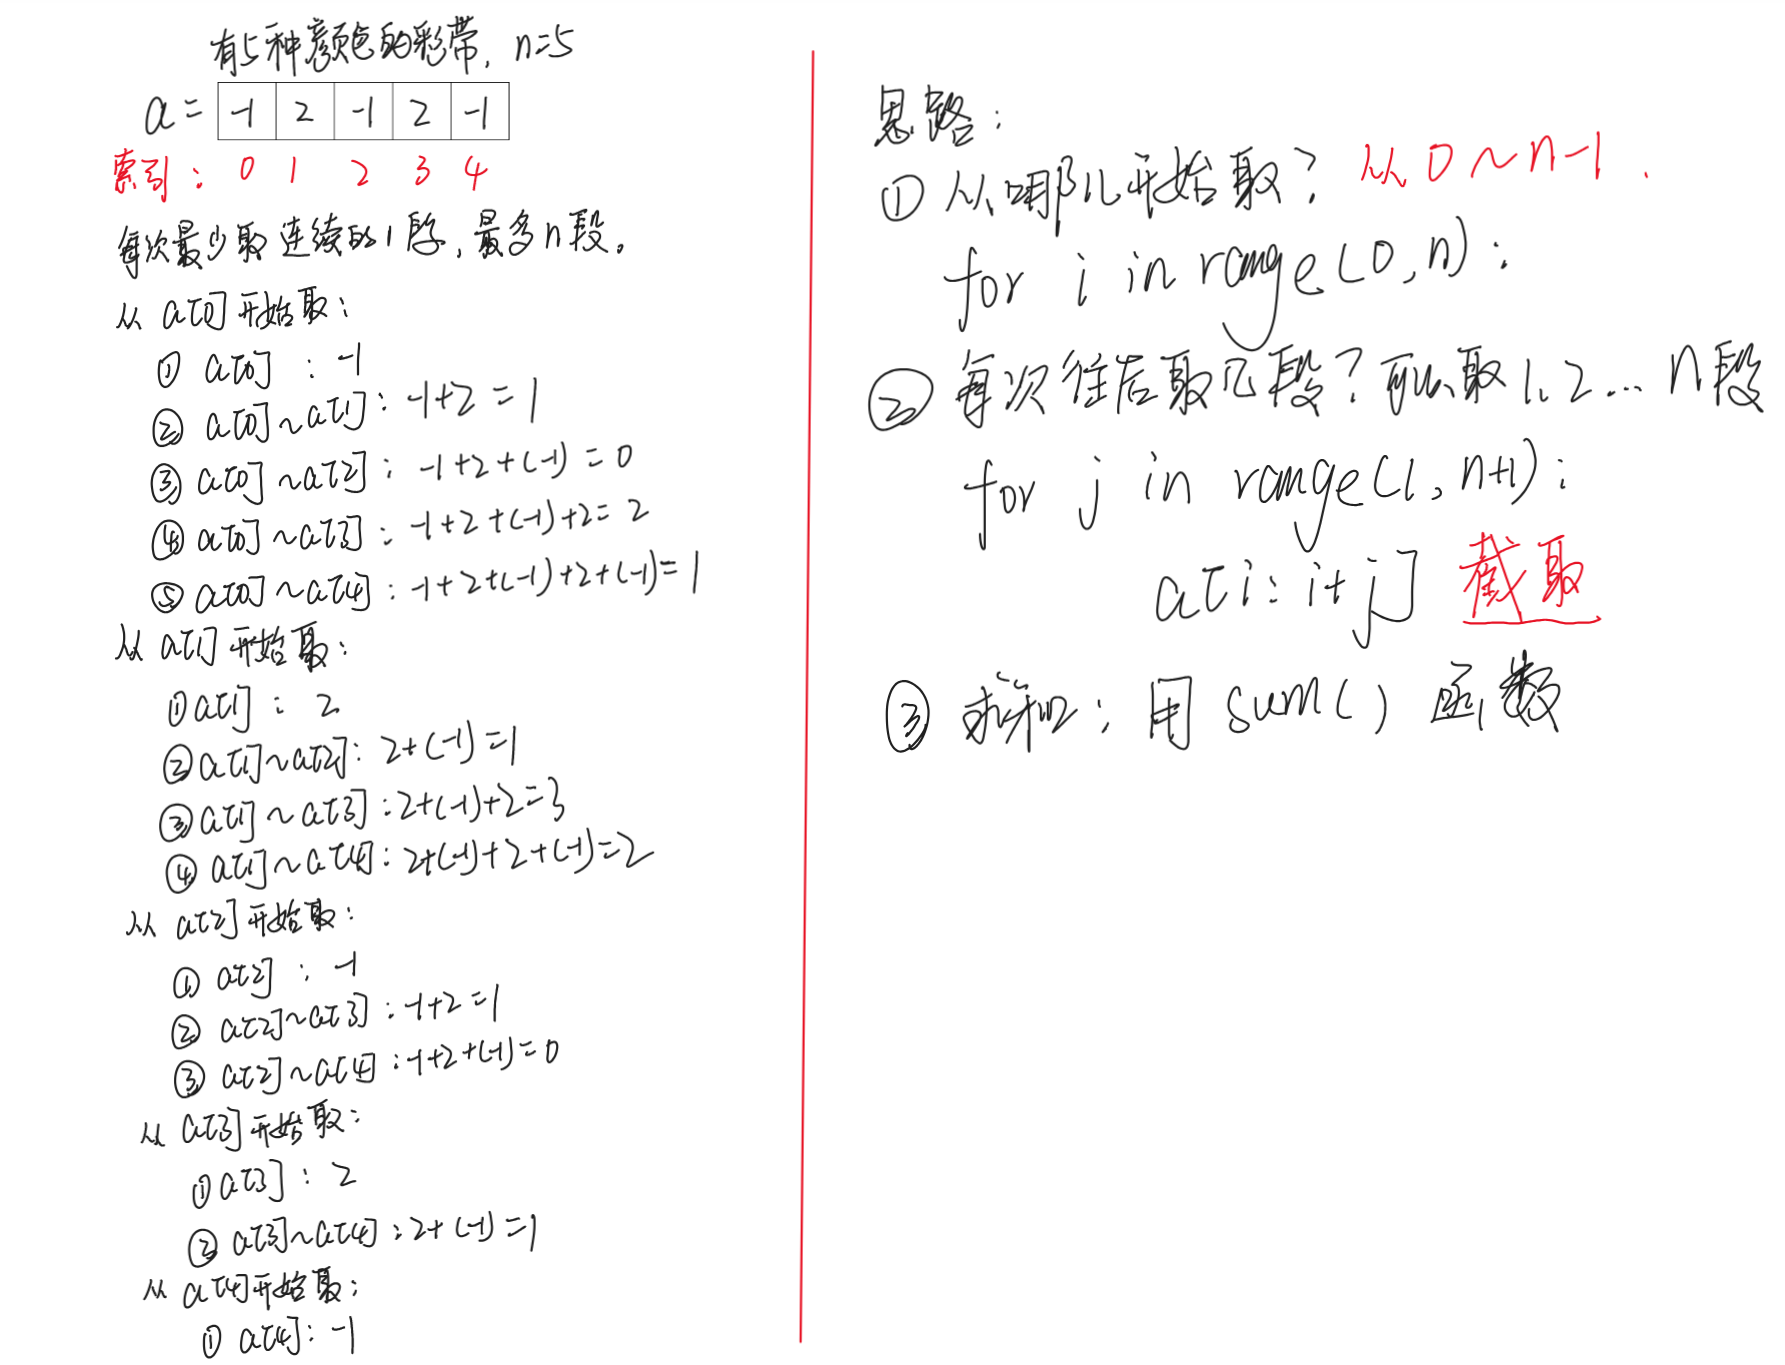 有5种颜色的彩带, n=5
a= -1 2 -1 2 -1
索引: 0 1 2 3 4
每次最少取连续的1段,最多n段。
从a[0]开始取:
① a[0] : -1
② a[0]~a[1]: -1+2=1
③ a[0]~a[2]: -1+2+(-1)=0
④ a[0]~a[3]: -1+2+(-1)+2=2
⑤ a[0]~a[4]: -1+2+(-1)+2+(-1)=1
从a[1]开始取:
①a[1] : 2
②a[1]~a[2]: 2+(-1)=1
③a[1]~a[3]:2+(-1)+2=3
④ a[1]~a[4]: 2+(-1)+2+(-1)=2
从a[2]开始取:
① a[2] : -1
② a[2]~a[3]:-1+2=1
③ a[2]~a[4]:-1+2+(-1)=0
从a[3]开始取:
①a[3]: 2
② a[3]~a[4]:2+(-1)=1
从a[4]开始取:
① a[4]: -1
思路:
① 从哪儿开始取? 从0~n-1.
for i in range(0,n):
② 每次往后取几段?可以取1、2...n段
for j in range(1,n+1):
a[i:i+j] 截取
③ 求和:用sum()函数